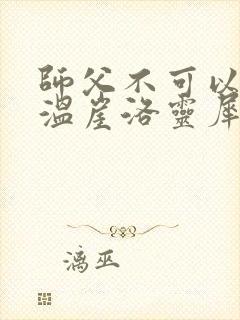 師父不可以
溫崖洛靈犀
漓巫